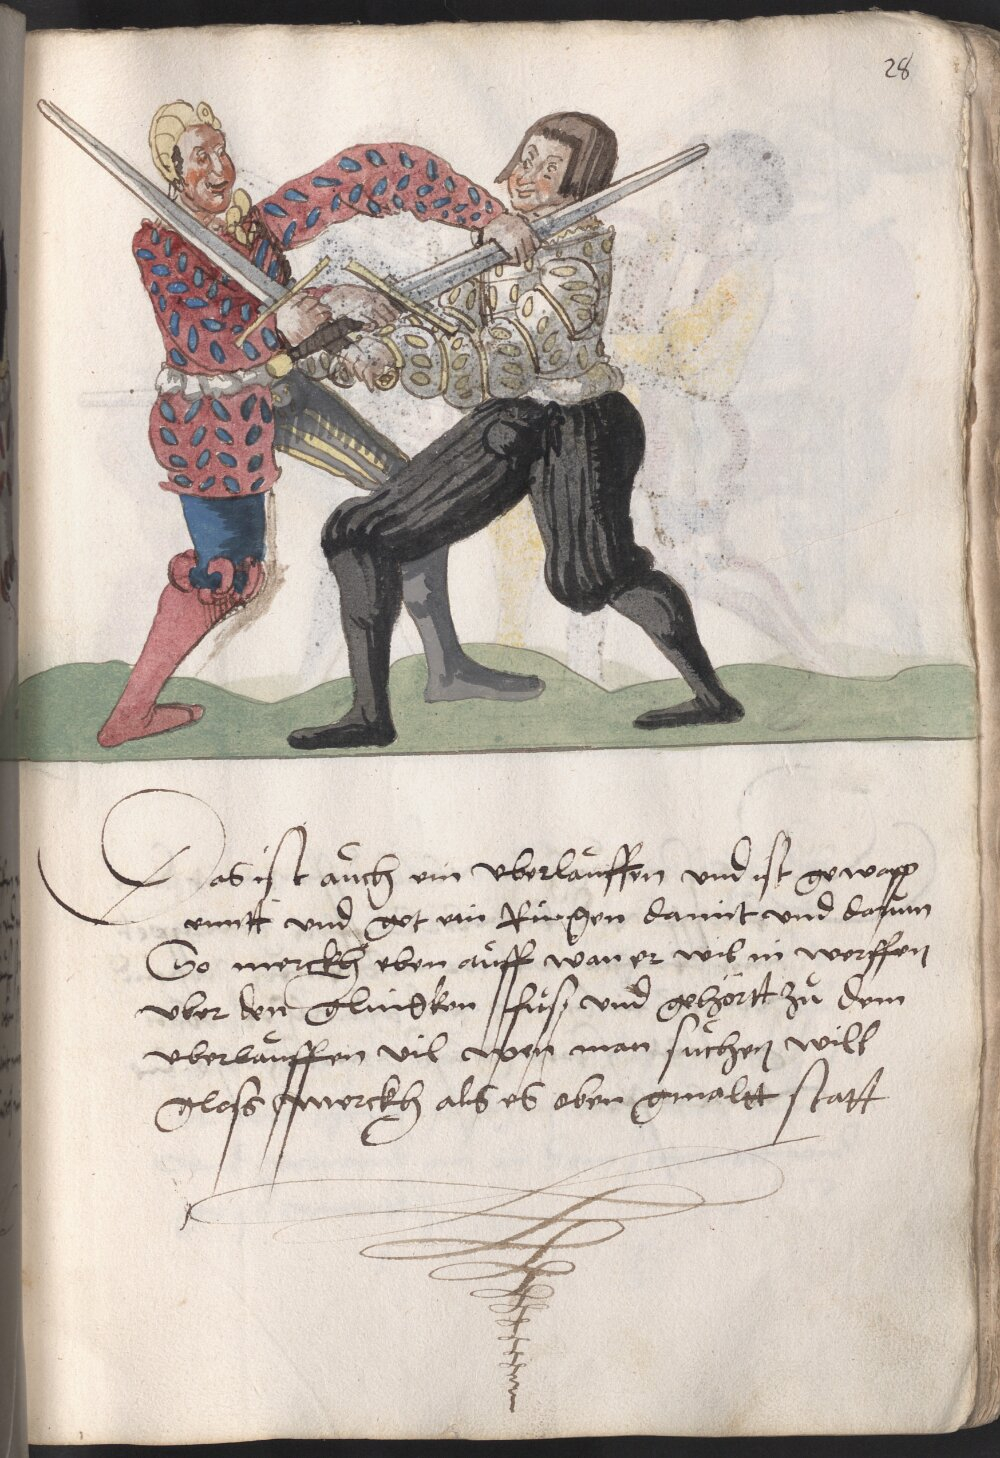 28
Das ist auch ein vberlauffen vnd ist gewapp
enntt vnd get ein Ringen damit vnd darum
So merckh eben auff wan er wil in werffen
vber den glinckhen fuß vnd gehörtt zu dem
vberlauffen vil wen man suchen will
gloss merckh als es oben gmaltt statt